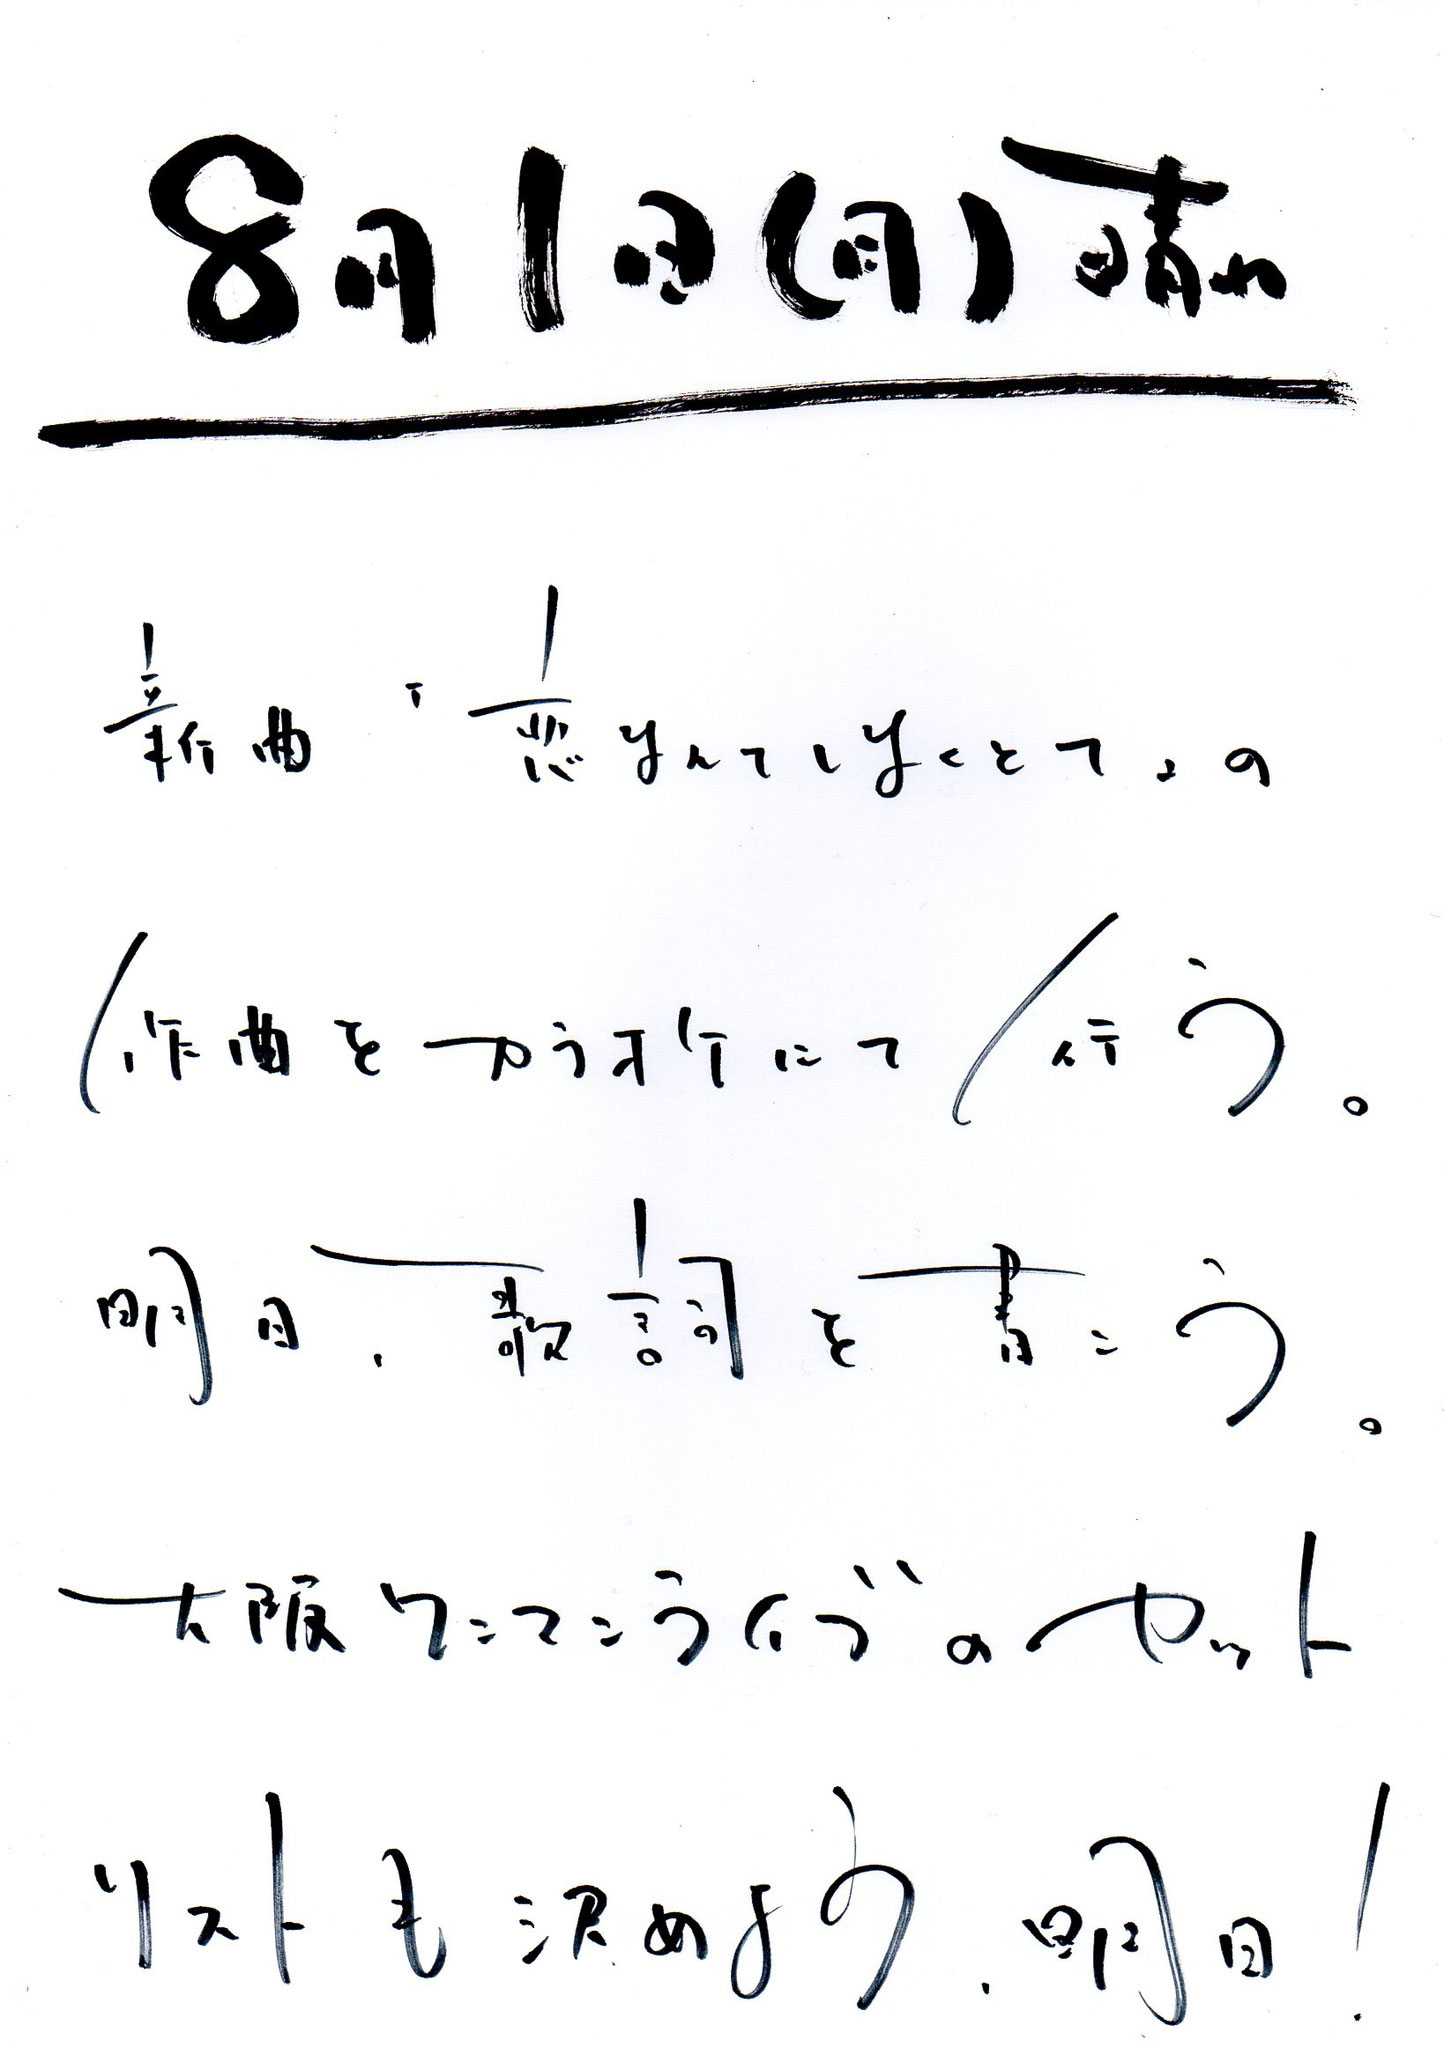 8月1日(月)晴れ
新曲「恋なんてしなくとて」の
作曲をカラオケにて行う。
明日、歌詞を書こう。
大阪ワンマンライブのセット
リストも決めよう、明日!